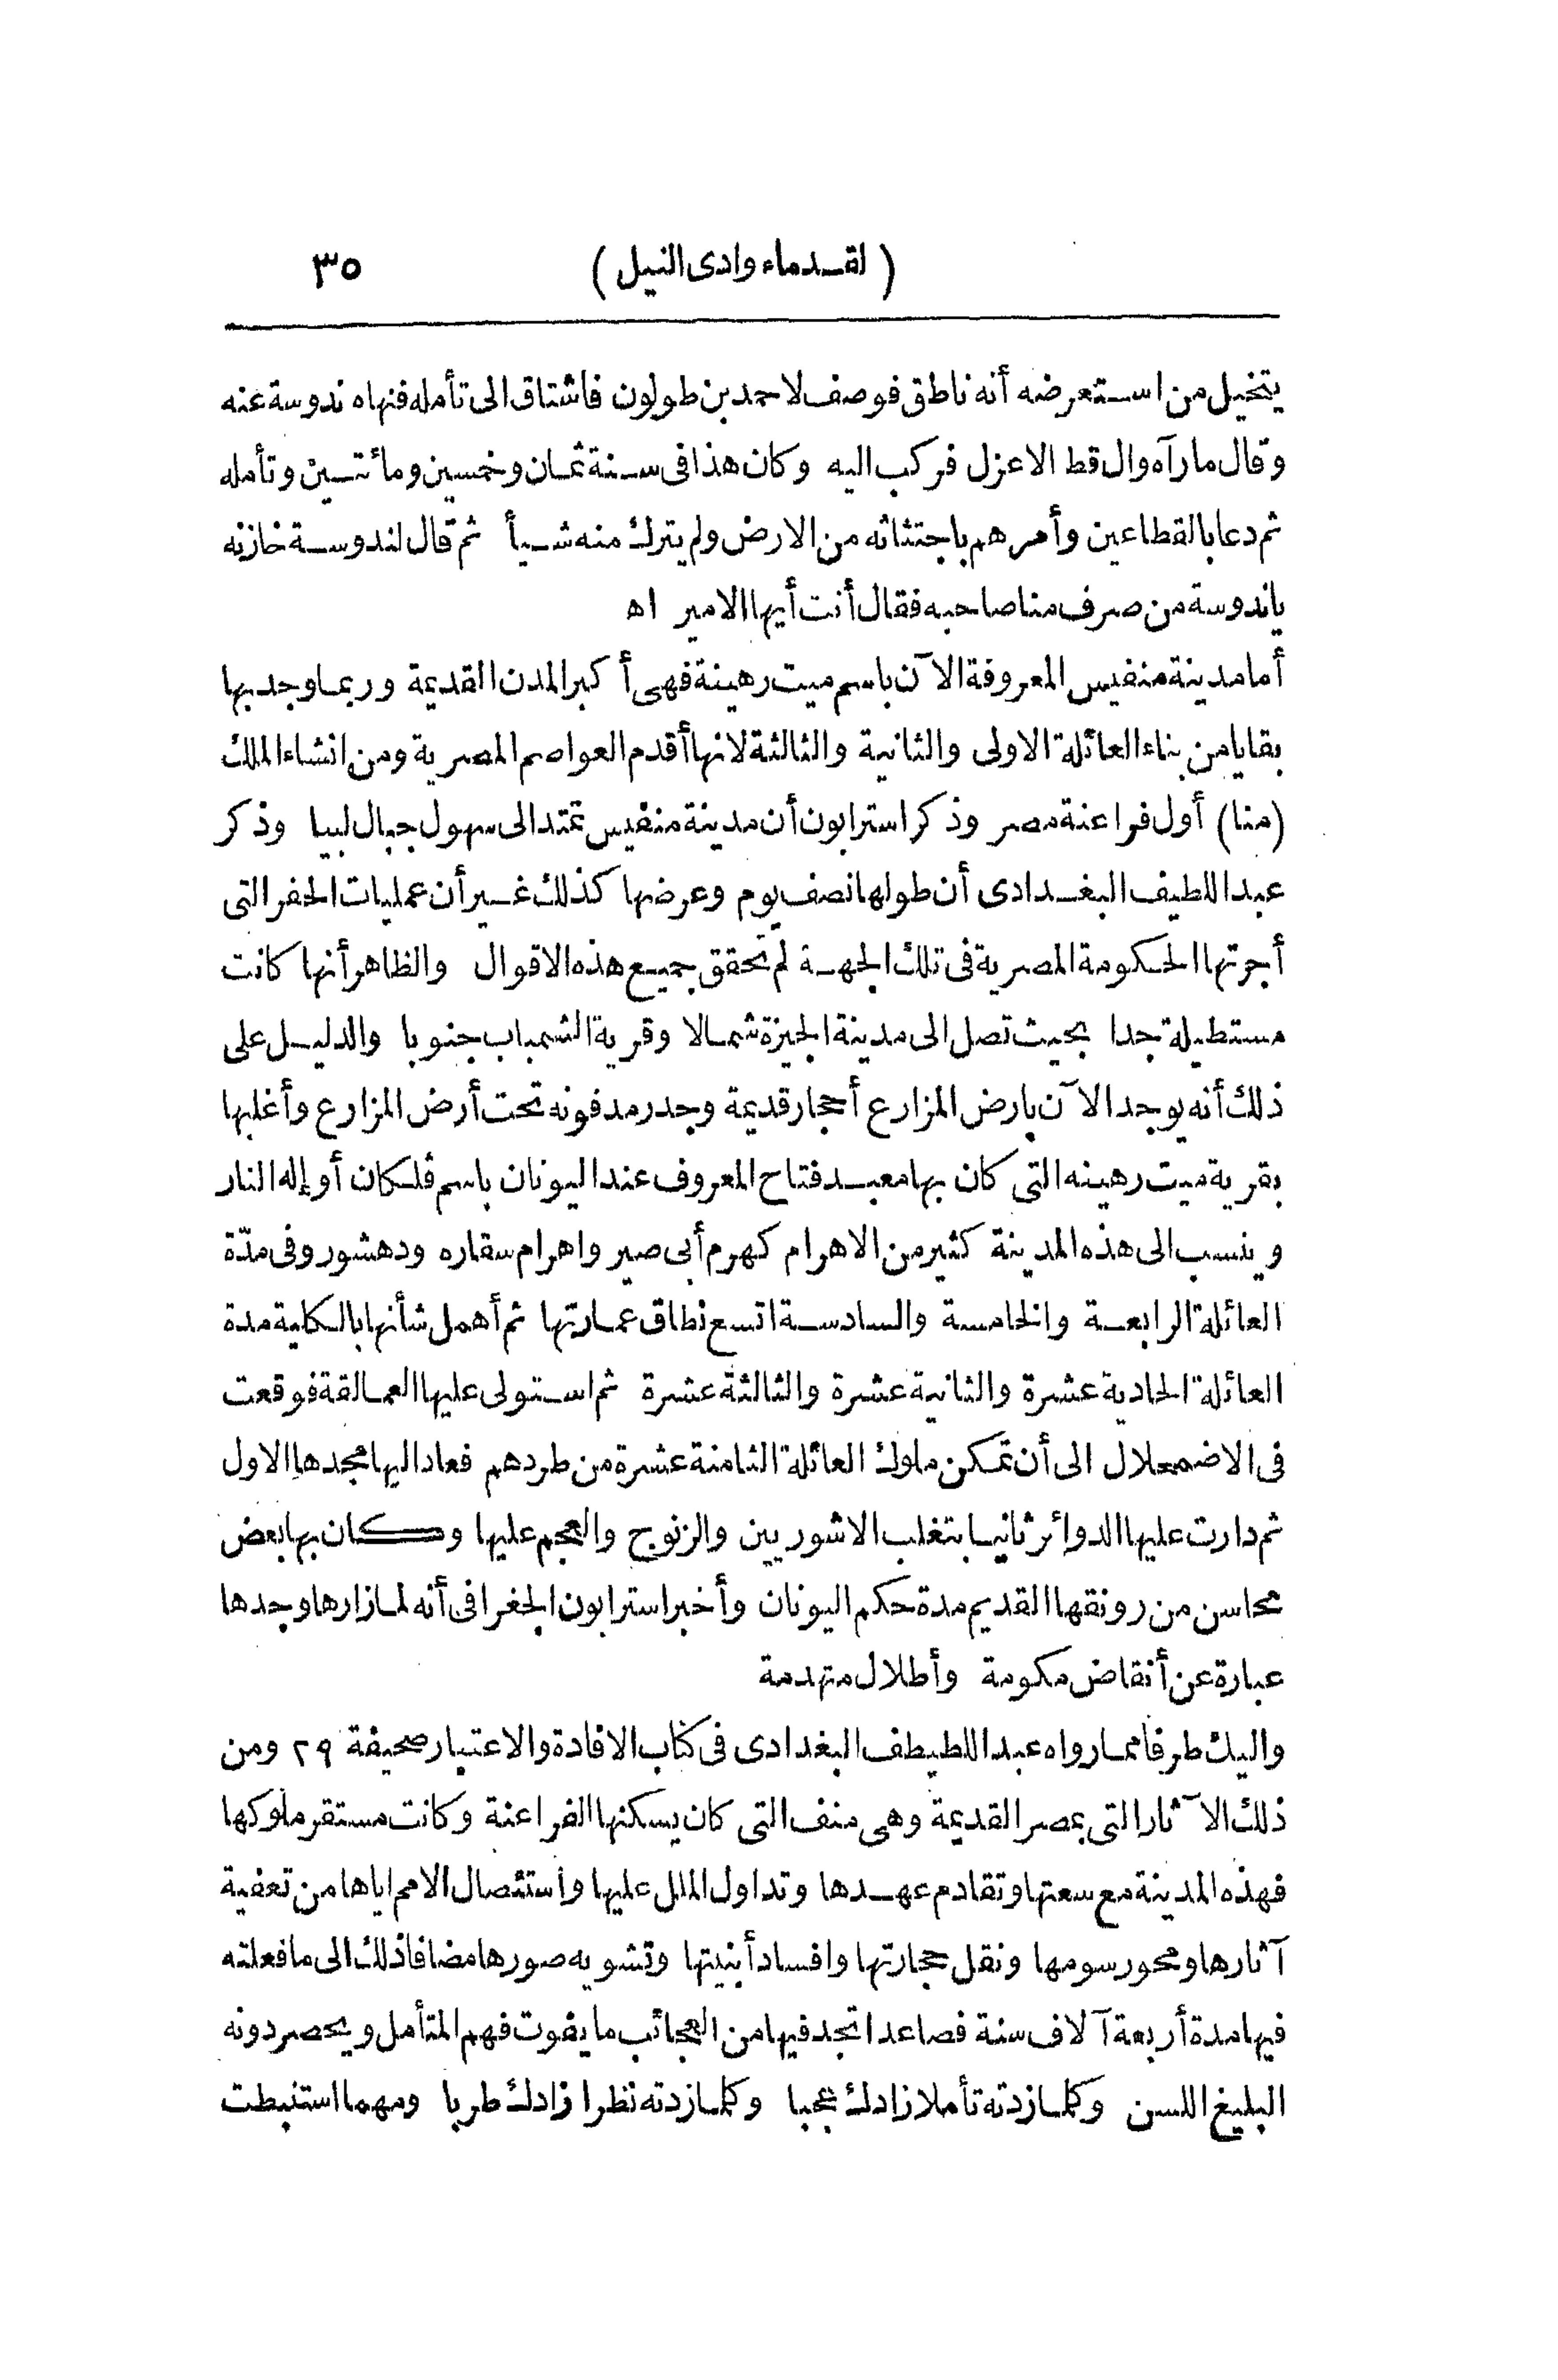 (لقدماء وادى النيل) ٣٥
يتخيل من استعرضه أنه ناطق فوصف لاحمد بن طولون فاشتاق الى تأمله فنهاه ندوسة عنه
وقال ما رآه وال قط الا عزل فركب اليه وكان هذا فى سنة ثمان وخمسين ومائتين وتأمله
ثم دعا بالقطاعين وأمرهم باجتثاثه من الارض ولم يترك منه شيأ ثم قال لندوسة خازنه
ياندوسة من صرف منا صاحبه فقال أنت أيها الامير اه
أما مدينة منفيس المعروفة الآن باسم ميت رهينة فهى أكبر المدن القديمة وربما وجد بها
بقايا من بناء العائلة الاولى والثانية والثالثة لانها أقدم العواصم المصرية ومن انشاء الملك
(منا) أول فراعنة مصر وذكر استرابون أن مدينة منفيس تمتد الى سهول جبال ليبيا وذكر
عبد اللطيف البغدادى أن طولها نصف يوم وعرضها كذلك غير أن عمليات الحفر التى
أجرتها الحكومة المصرية فى تلك الجهة لم تحقق جميع هذه الاقوال والظاهر أنها كانت
مستطيلة جدا بحيث تصل الى مدينة الجيزة شمالا وقرية الشمباب جنوبا والدليل على
ذلك أنه يوجد الآن بارض المزارع أحجار قديمة وجدر مدفونه تحت أرض المزارع وأغلبها
بقرية ميت رهينه التى كان بها معبد فتاح المعروف عند اليونان باسم ڤلكان أو إله النار
وينسب الى هذه المدينة كثير من الاهرام كهرم أبى صير واهرام سقاره ودهشور وفى مدّة
العائلة الرابعة والخامسة والسادسة اتسع نطاق عمارتها ثم أهمل شأنها بالكلية مدة
العائلة الحادية عشرة والثانية عشرة والثالثة عشرة ثم استولى عليها العمالقة فوقعت
فى الاضمحلال الى أن تمكن ملوك العائلة الثامنة عشرة من طردهم فعاد اليها مجدها الاول
ثم دارت عليها الدوائر ثانيا بتغلب الاشوريين والزنوج والعجم عليها وكان بها بعض
محاسن من رونقها القديم مدة حكم اليونان وأخبر استرابون الجغرافى أنه لما زارها وجدها
عبارة عن أنقاض مكومة وأطلال متهدمة
واليك طرفا مما رواه عبد اللطيطف البغدادى فى كتاب الافادة والاعتبار صحيفة ٢٩ ومن
ذلك الآثار التى بمصر القديمة وهى منف التى كان يسكنها الفراعنة وكانت مستقر ملوكها
فهذه المدينة مع سعتها وتقادم عهدها وتداول الملل عليها واستئصال الامم اياها من تعفية
آثارها ومحو رسومها ونقل حجارتها وافساد أبنيتها وتشويه صورها مضافا ذلك الى ما فعلته
فيها مدة أربعة آلاف سنة فصاعدا تجد فيها من العجائب ما يفوت فهم المتأمل ويحصر دونه
البليغ اللسن وكلما زدته تأملا زادك عجبا وكلما زدته نظرا زادك طربا ومهما استنبطت